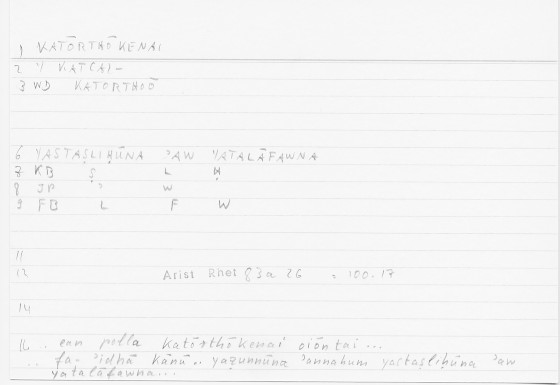 1 KATŌRTHŌKENAI
2 V KAT(A)-
3 WD KATORTHOŌ
6 YASTAṢLIḤŪNA ʾAW YATALĀFAWNA
7 KB Ṣ L Ḥ
8 JP ʾ W
9 FB L F W
11
12 Arist Rhet 83a 26 = 100.17
14
16 . ean polla Katōrthōkenai oiōntai ...
.. fa- ʾidhā kānū .. yaẓunnūna ʾannahum yastaṣliḥūna ʾaw
yatalāfawna...